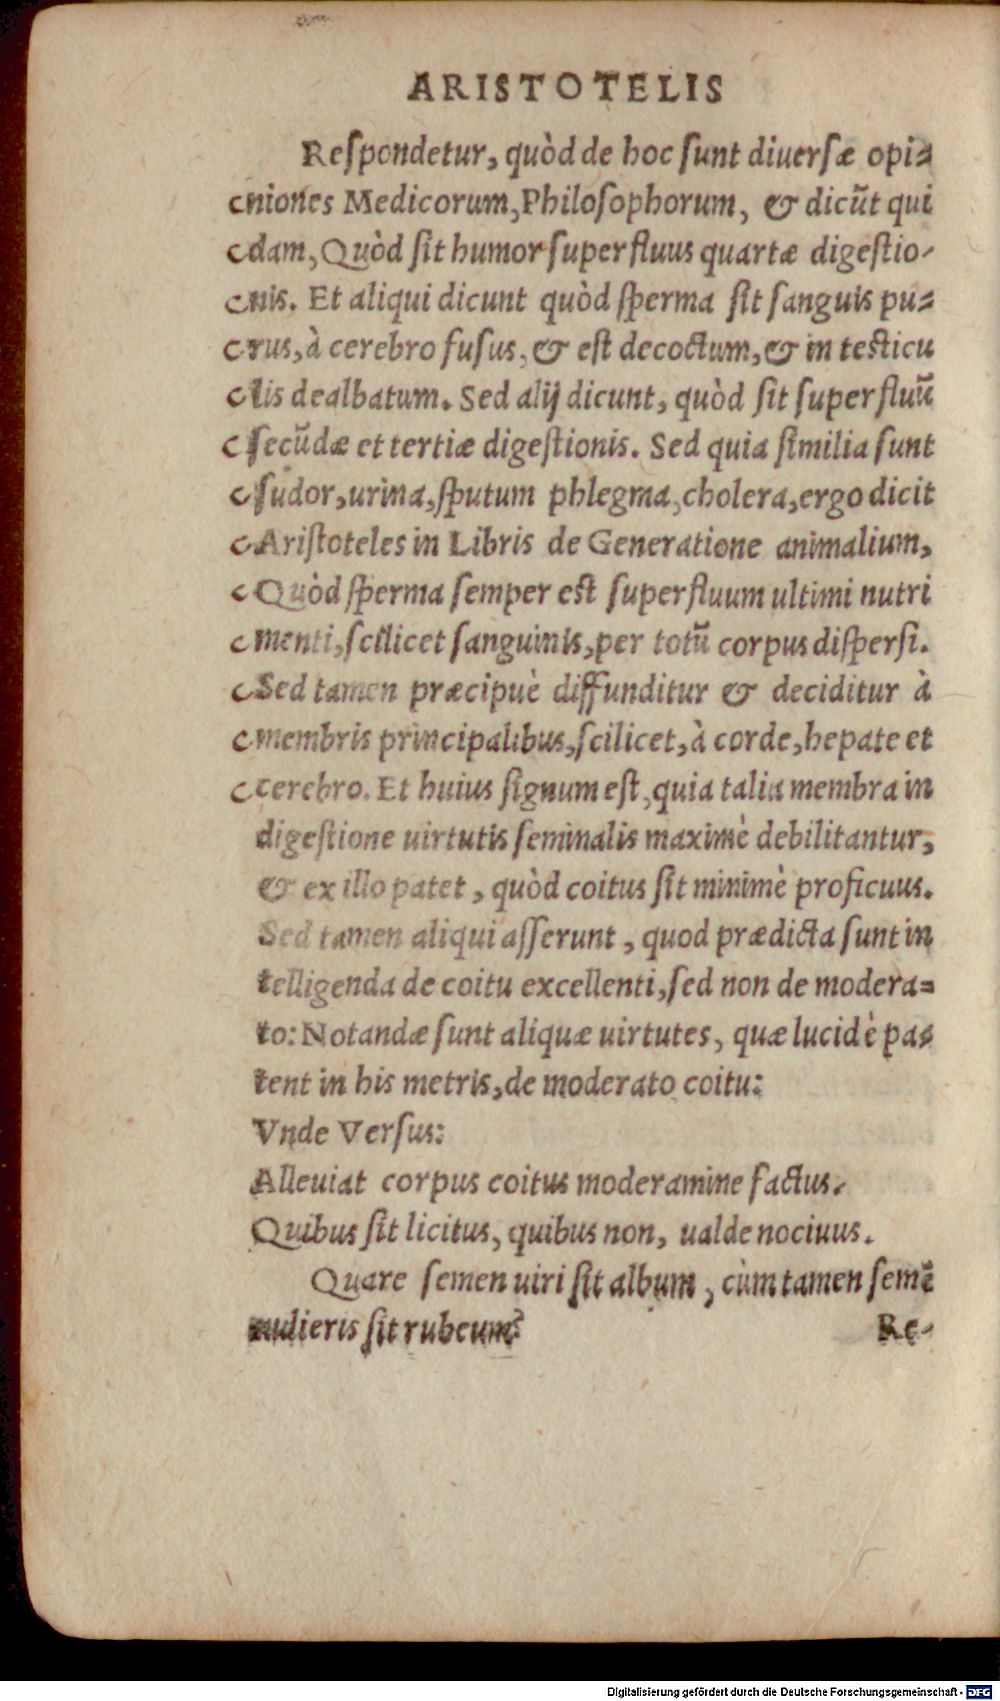 ARISTOTELIS
Reſpondetur, quòd de hoc ſunt diuerſæ opi=
niones Medicorum, Philoſophorum, & dicũt qui
dam, Quòd ſit humor ſuperfluus quartæ digeſtio-
nis. Et aliqui dicunt quòd ſperma ſit ſanguis pu=
rus, à cerebro fuſus, & eſt decoctum, & in teſticu
lis dealbatum. Sed alij dicunt, quòd ſit ſuperfluũ
ſecũdæ et tertiæ digeſtionis. Sed quia ſimilia ſunt
ſudor, urina, ſputum phlegma, cholera, ergo dicit
Ariſtoteles in Libris de Generatione animalium,
Quòd ſperma ſemper eſt ſuperfluum ultimi nutri
menti, ſcilicet ſanguinis, per totũ corpus diſperſi.
Sed tamen præcipuè diffunditur & deciditur à
membris principalibus, ſcilicet, à corde, hepate et
cerebro. Et huius ſignum eſt, quia talia membra in
digeſtione uirtutis ſeminalis maximè debilitantur,
& ex illo patet, quòd coitus ſit minimè proficuus.
Sed tamen aliqui aſſerunt, quod prædicta ſunt in
telligenda de coitu excellenti, ſed non de modera=
to: Notandæ ſunt aliquæ uirtutes, quæ lucidè pa=
tent in his metris, de moderato coitu:
Vnde Verſus:
Alleuiat corpus coitus moderamine factus.
Quibus ſit licitus, quibus non, ualde nociuus.
Quare ſemen uiri ſit album, cùm tamen ſemẽ
mulieris ſit rubeum?
Re-
Digitalisierung gefördert durch die Deutsche Forschungsgemeinschaft - DFG